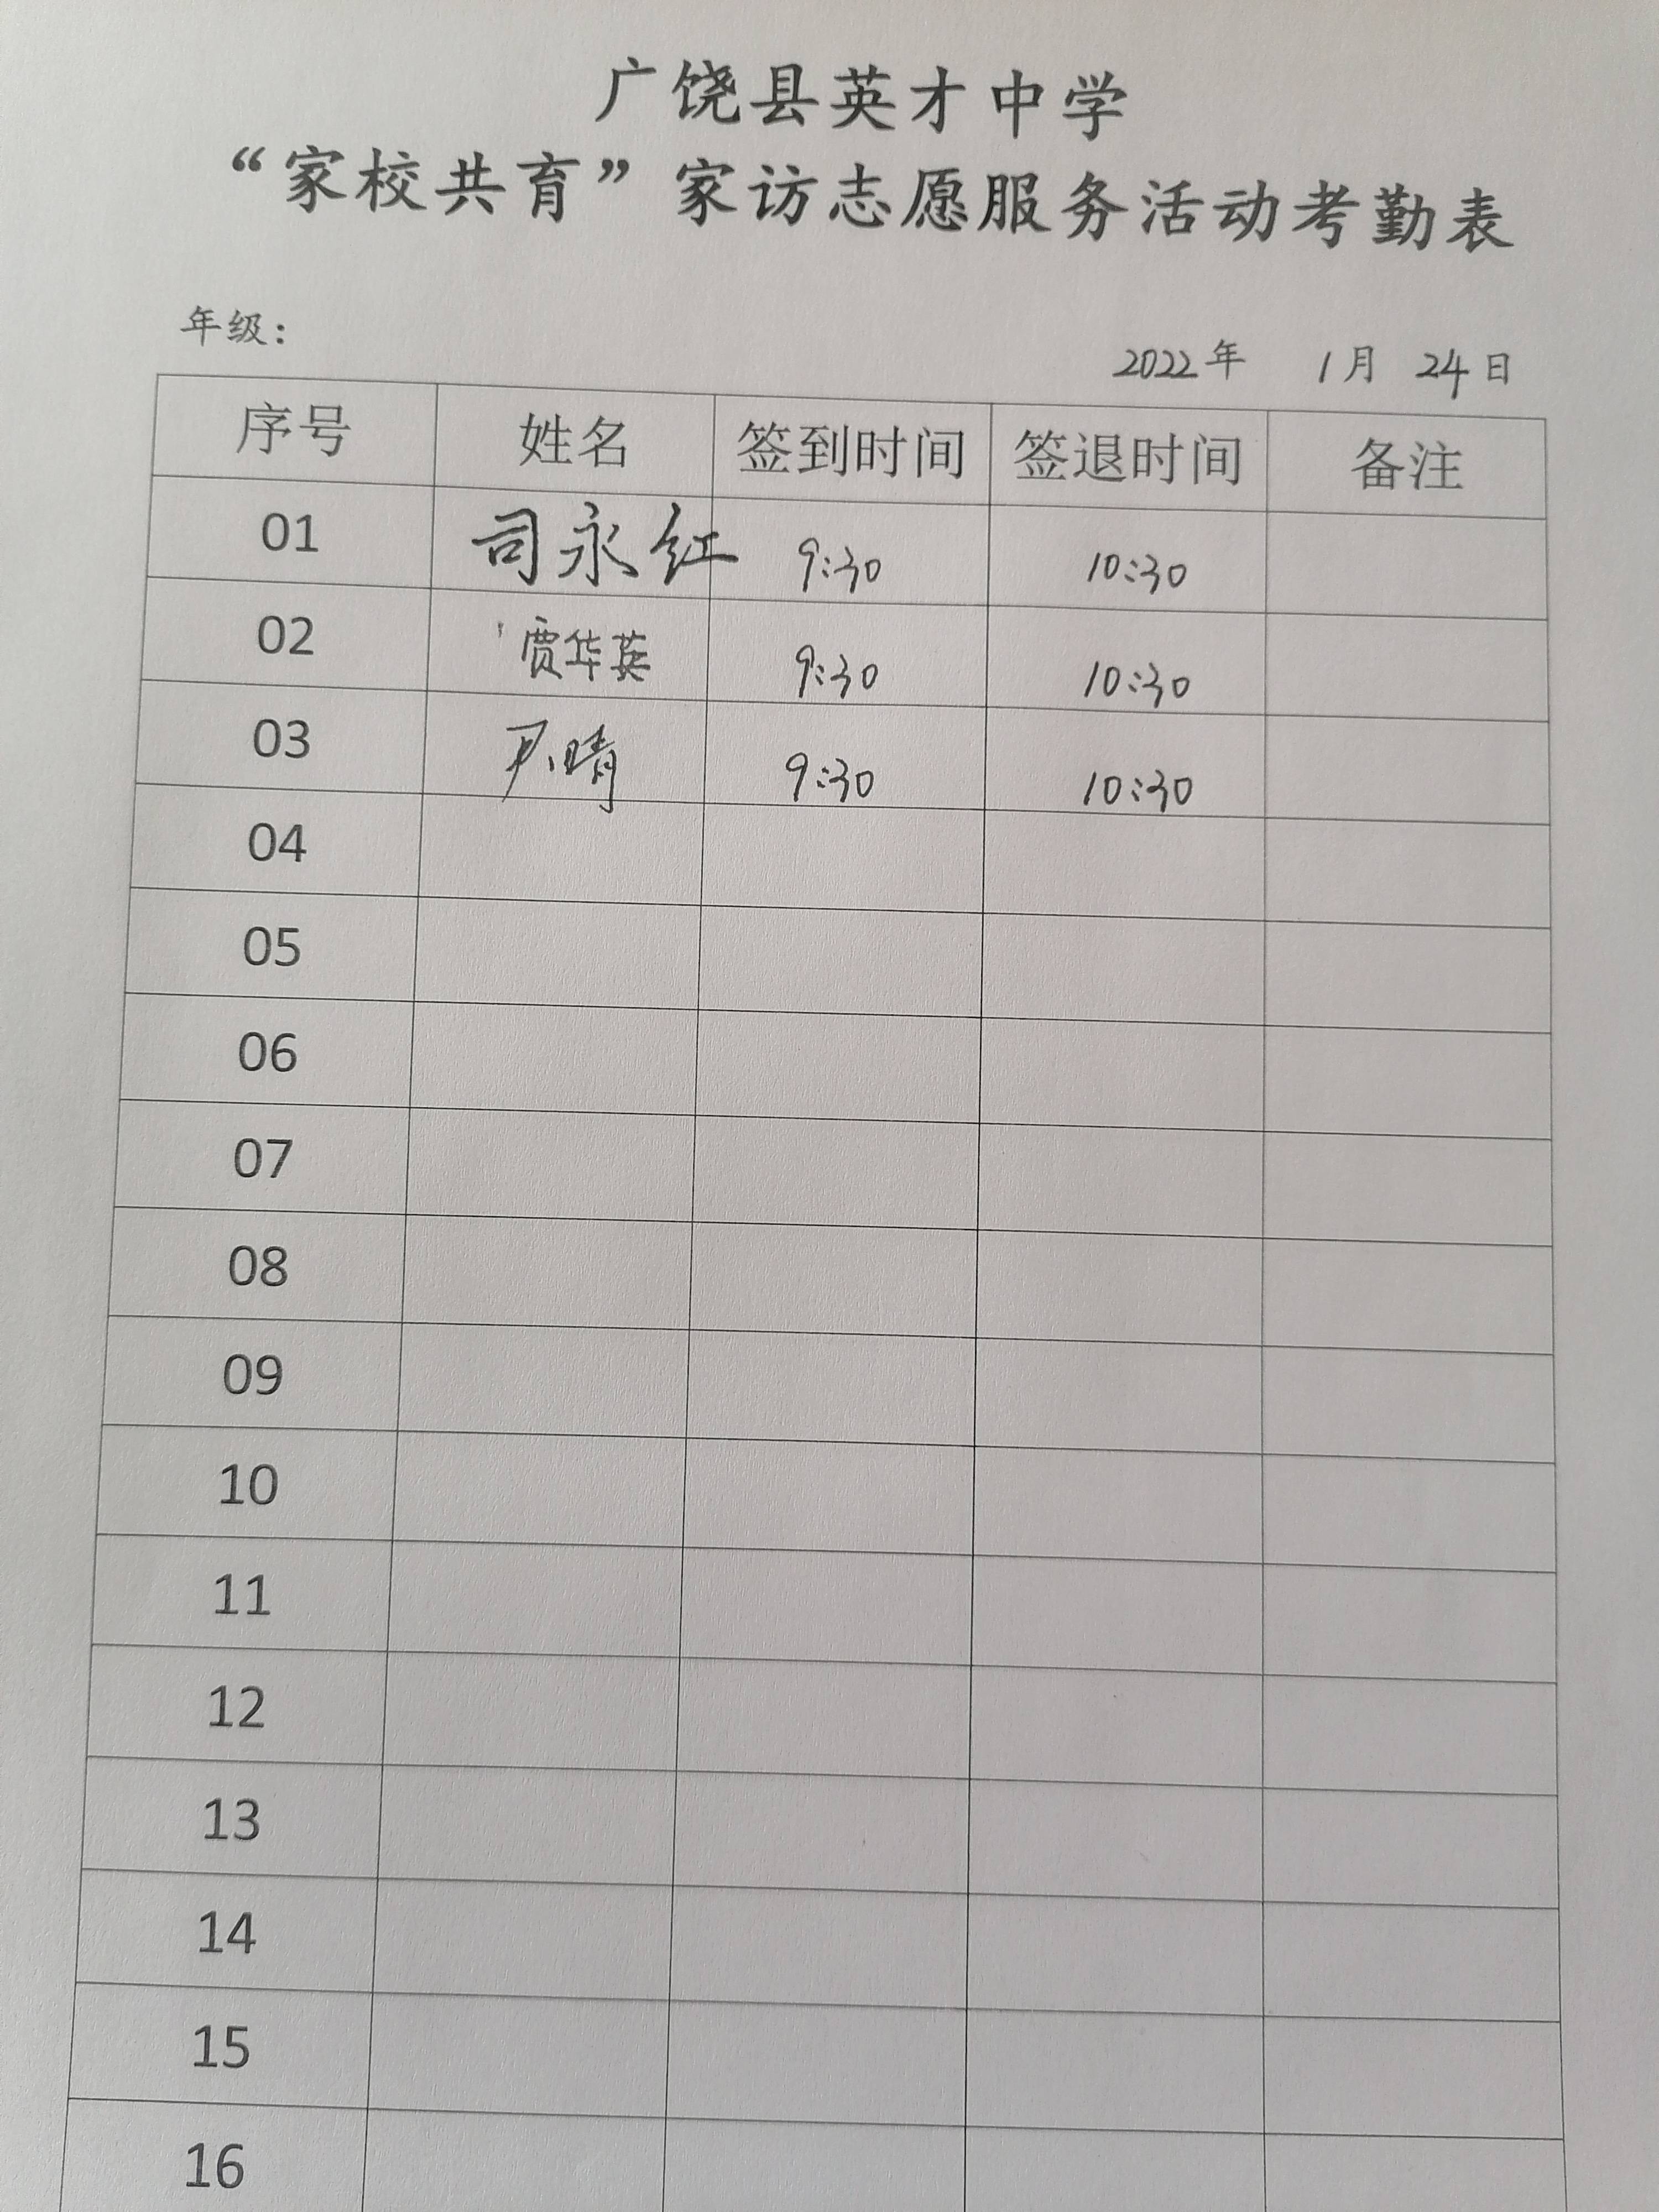 广饶县英才中学
“家校共育”家访志愿服务活动考勤表
年级：
2022年 1月 24日
序号 姓名 签到时间 签退时间 备注
01 司永红 9:30 10:30
02 贾华英 9:30 10:30
03 尹晴 9:30 10:30
04
05
06
07
08
09
10
11
12
13
14
15
16